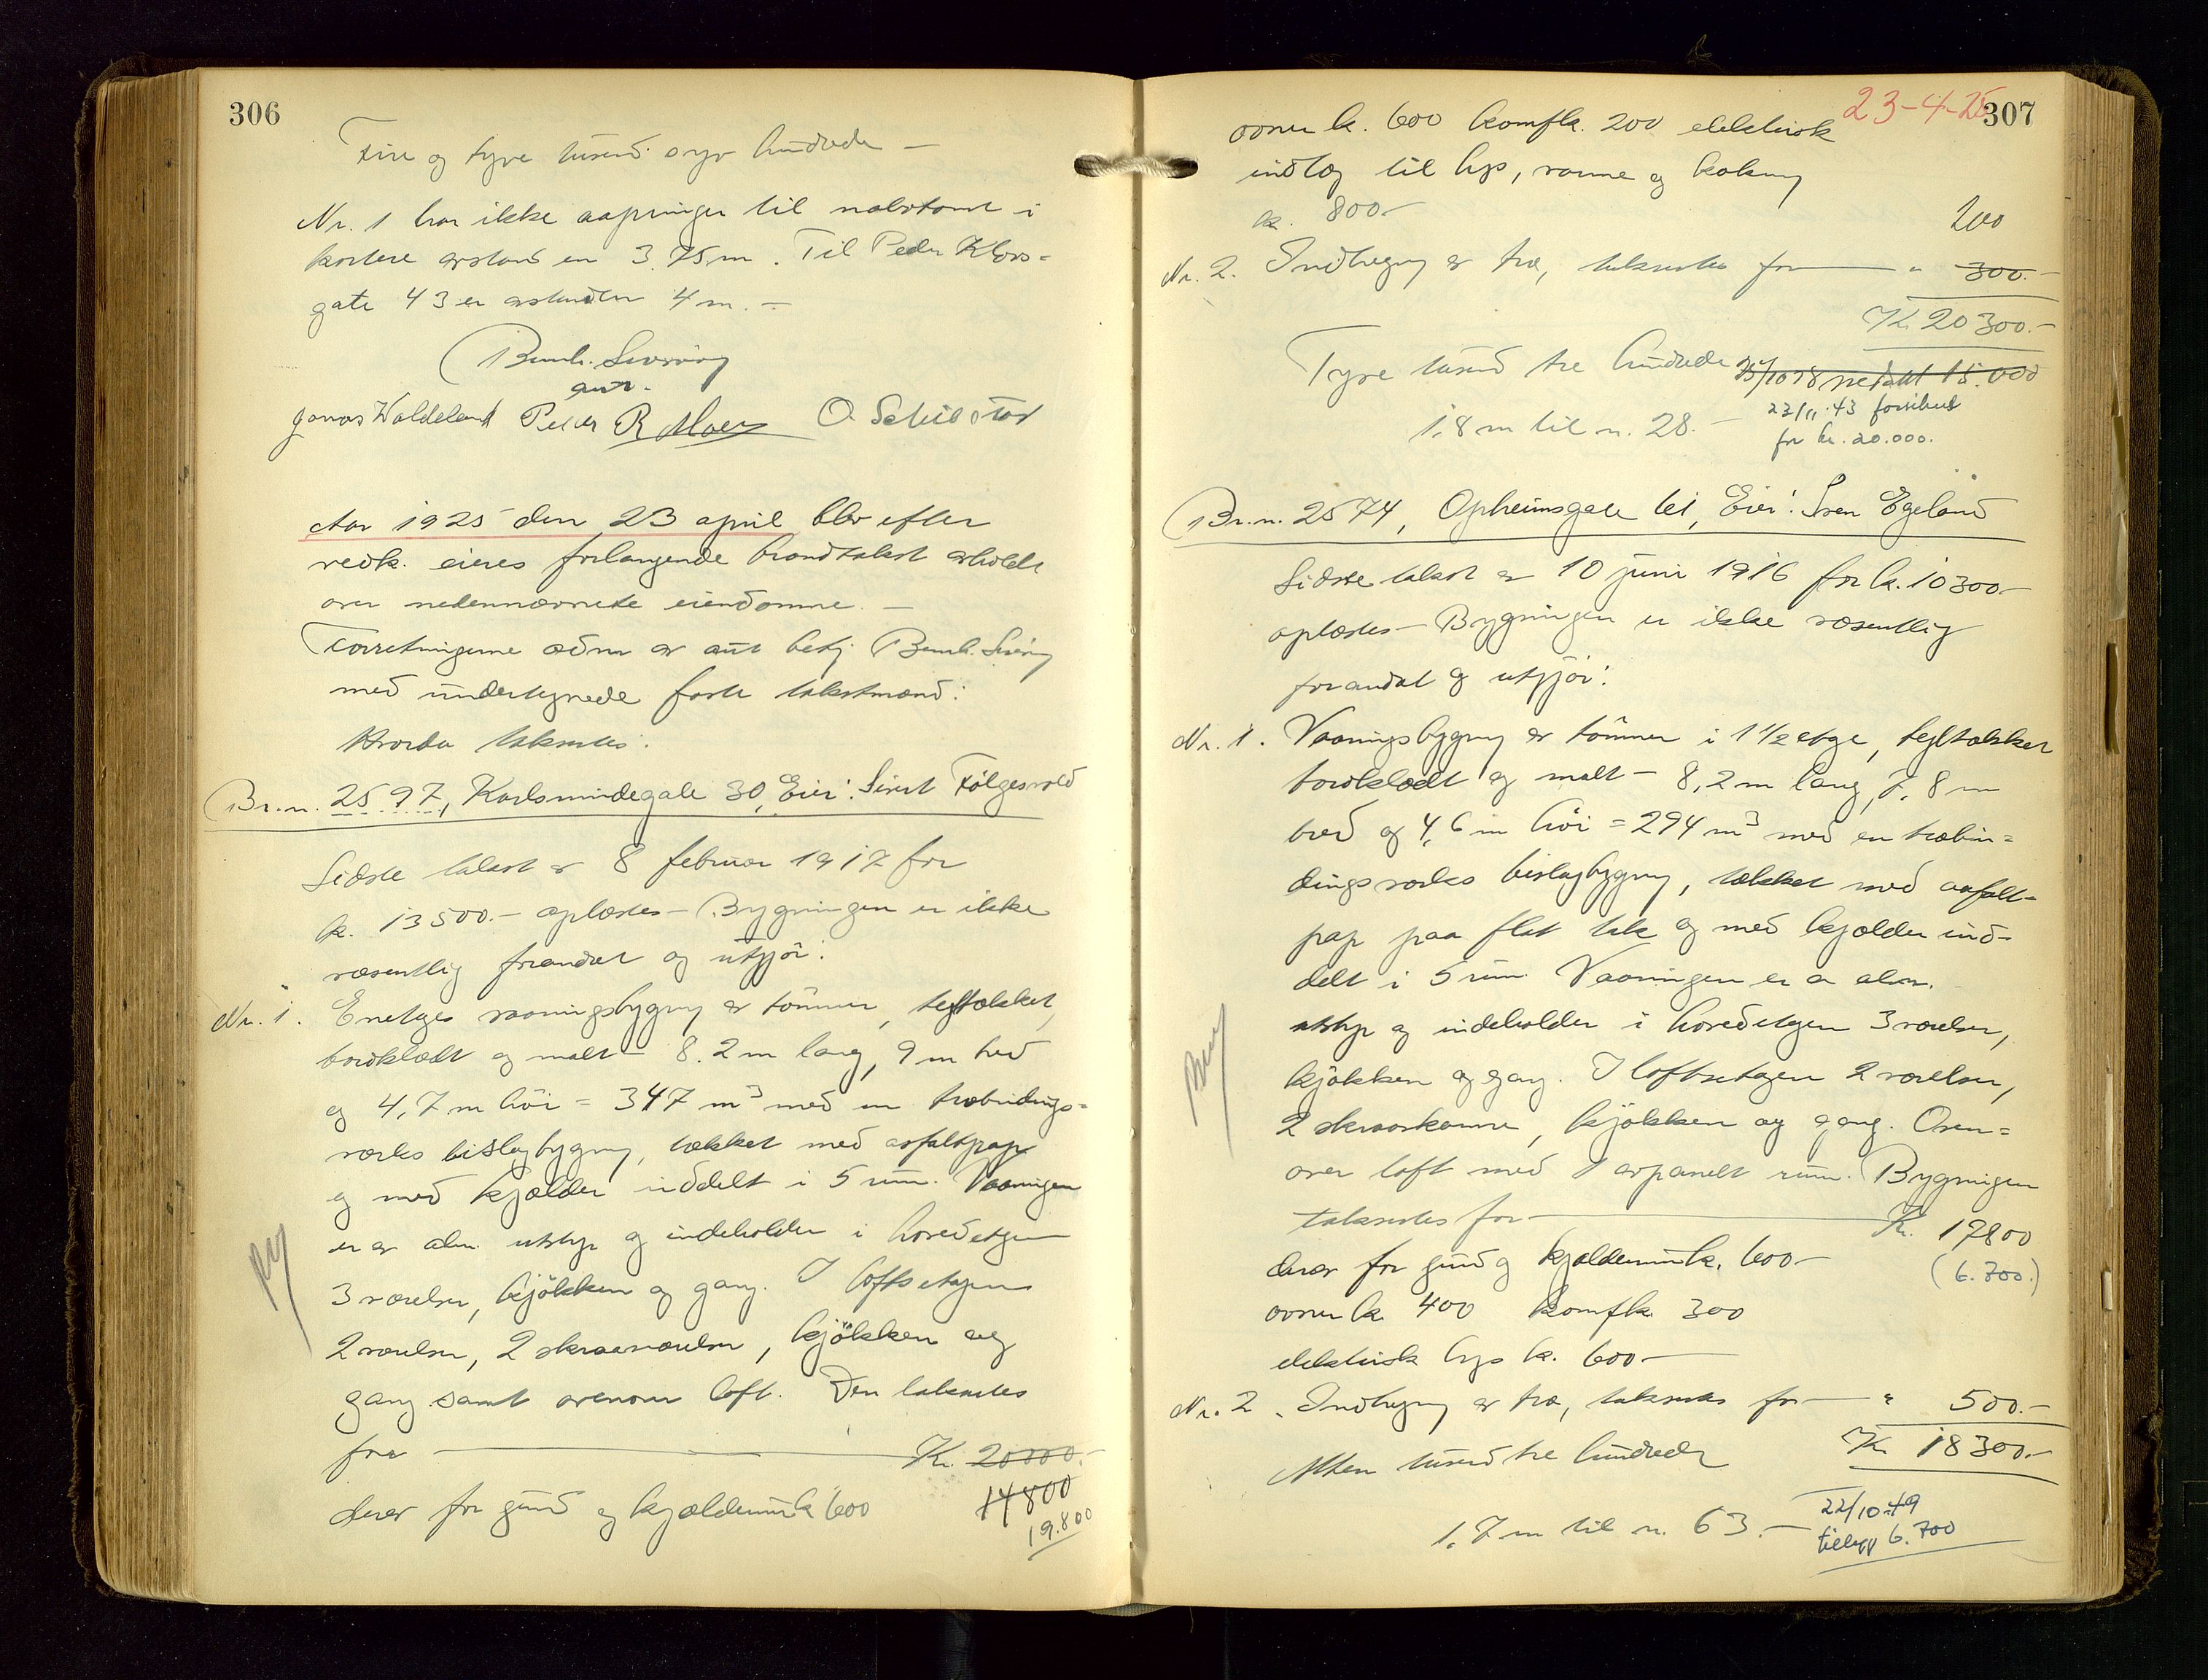 306
Fire og tyve tusend syv hundrede —
Nr. 1 har ikke aapninger til nabotomt i
kortere avstand en 3.75 m. Til Peder Klows=
gate 43 er avstanden 4 m. —
Bernh.
aut.
Jonas Waldeland Peder R Moen O Schiøstad
Aar 1925 den 23 april blev efter
vedk. eieres forlangende brandtakst avholdt
over nedennævnte eiendomme. —
Forretningerne adm av aut bestj. Bernh.
med undertegnede faste takstmænd:
Hvorda taksertes:
Br.n. 2597, Karlsmindegate 30, Eier: Sivert Følgesvold
Sidste takst av 8 februar 1917 for
k. 13500.- oplæstes - Bygningen er ikke
væsentlig forandret og utgjör:
Nr. 1. Enetages vaaningsbygning av tömmer, tegltækket,
bordklædt og malt - 8.2 m lang, 9 m bred
og 4,7 m höi = 347 m3 med en træbindings=
verks bislagbygning, tækket med asfaltpap
og med kjælder inddelt i 5 rum. Vaaningen
er av alm utstyr og indeholder i hovedetagen
3 værelser, kjökken og gang. I loftsetagen
2 værelser, 2 skraaværelser, kjökken og
gang samt ovenover loft. Den taksertes
for — Kr. 20000.-
14800
derav for grund og kjælderrum k 600
19.800
23-4-25
307
ovner k. 600 komf k. 200 elektrisk
indlæg til lys, varme og kokning
k. 800.-
200
Nr. 2. Indhegning av træ, taksertes for — " 300.-
Kr. 20300.-
Tyve tusend tre hundrede
25/10 38 nedsatt 15.000
23/11.43 forsikret
for kr. 20.000.
1.8 m til n. 28. —
Br.n. 2574, Opheimsgate 61, Eier: Sven Egeland
Sidste takst av 10 juni 1916 for k. 10300.-
oplæstes - Bygningen er ikke væsentlig
forandret og utgjör:
Nr. 1. Vaaningsbygning av tömmer i 1 1/2 etage, tegltækket
bordklædt og malt - 8,2 m lang, 7,8 m
bred og 4,6 m höi = 294 m3 med en træbin=
dingsverks bislagbygning, tækket med asfalt=
pap paa flat tak og med kjælder ind=
delt i 5 rum. Vaaningen er av alm.
utstyr og indeholder i hovedetagen 3 værelser,
kjökken og gang. I loftsetagen 2 værelser,
2 skraaskamre, kjökken og gang. Oven=
over loft med 1 avpanelt rum. Bygningen
taksertes for — Kr. 17800
derav for grund og kjælderrum k. 600.-
(6.700.)
ovner k. 400 komf k. 300
elektrisk lys k. 600.-
Nr. 2. Indhegning av træ, taksertes for — " 500.-
Kr 18300.-
Atten tusend tre hundrede
22/10.49
tillegg 6.700
1.7 m til n. 63. —